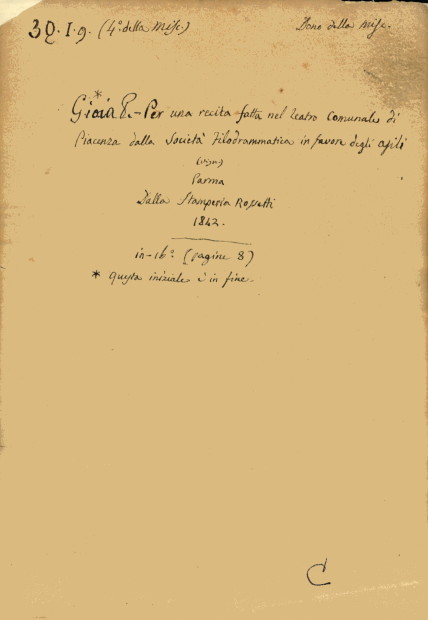 3Q. I. 9. (4° della Misc.) Dono della Misc.
*
Gioia P. - Per una recita fatta nel teatro Comunale di
Piacenza dalla Società Filodrammatica in favore degli asili
Parma
Dalla Stamperia Rossetti
1842.
in-16° (pagine 8)
* questa iniziale è in fine.
C